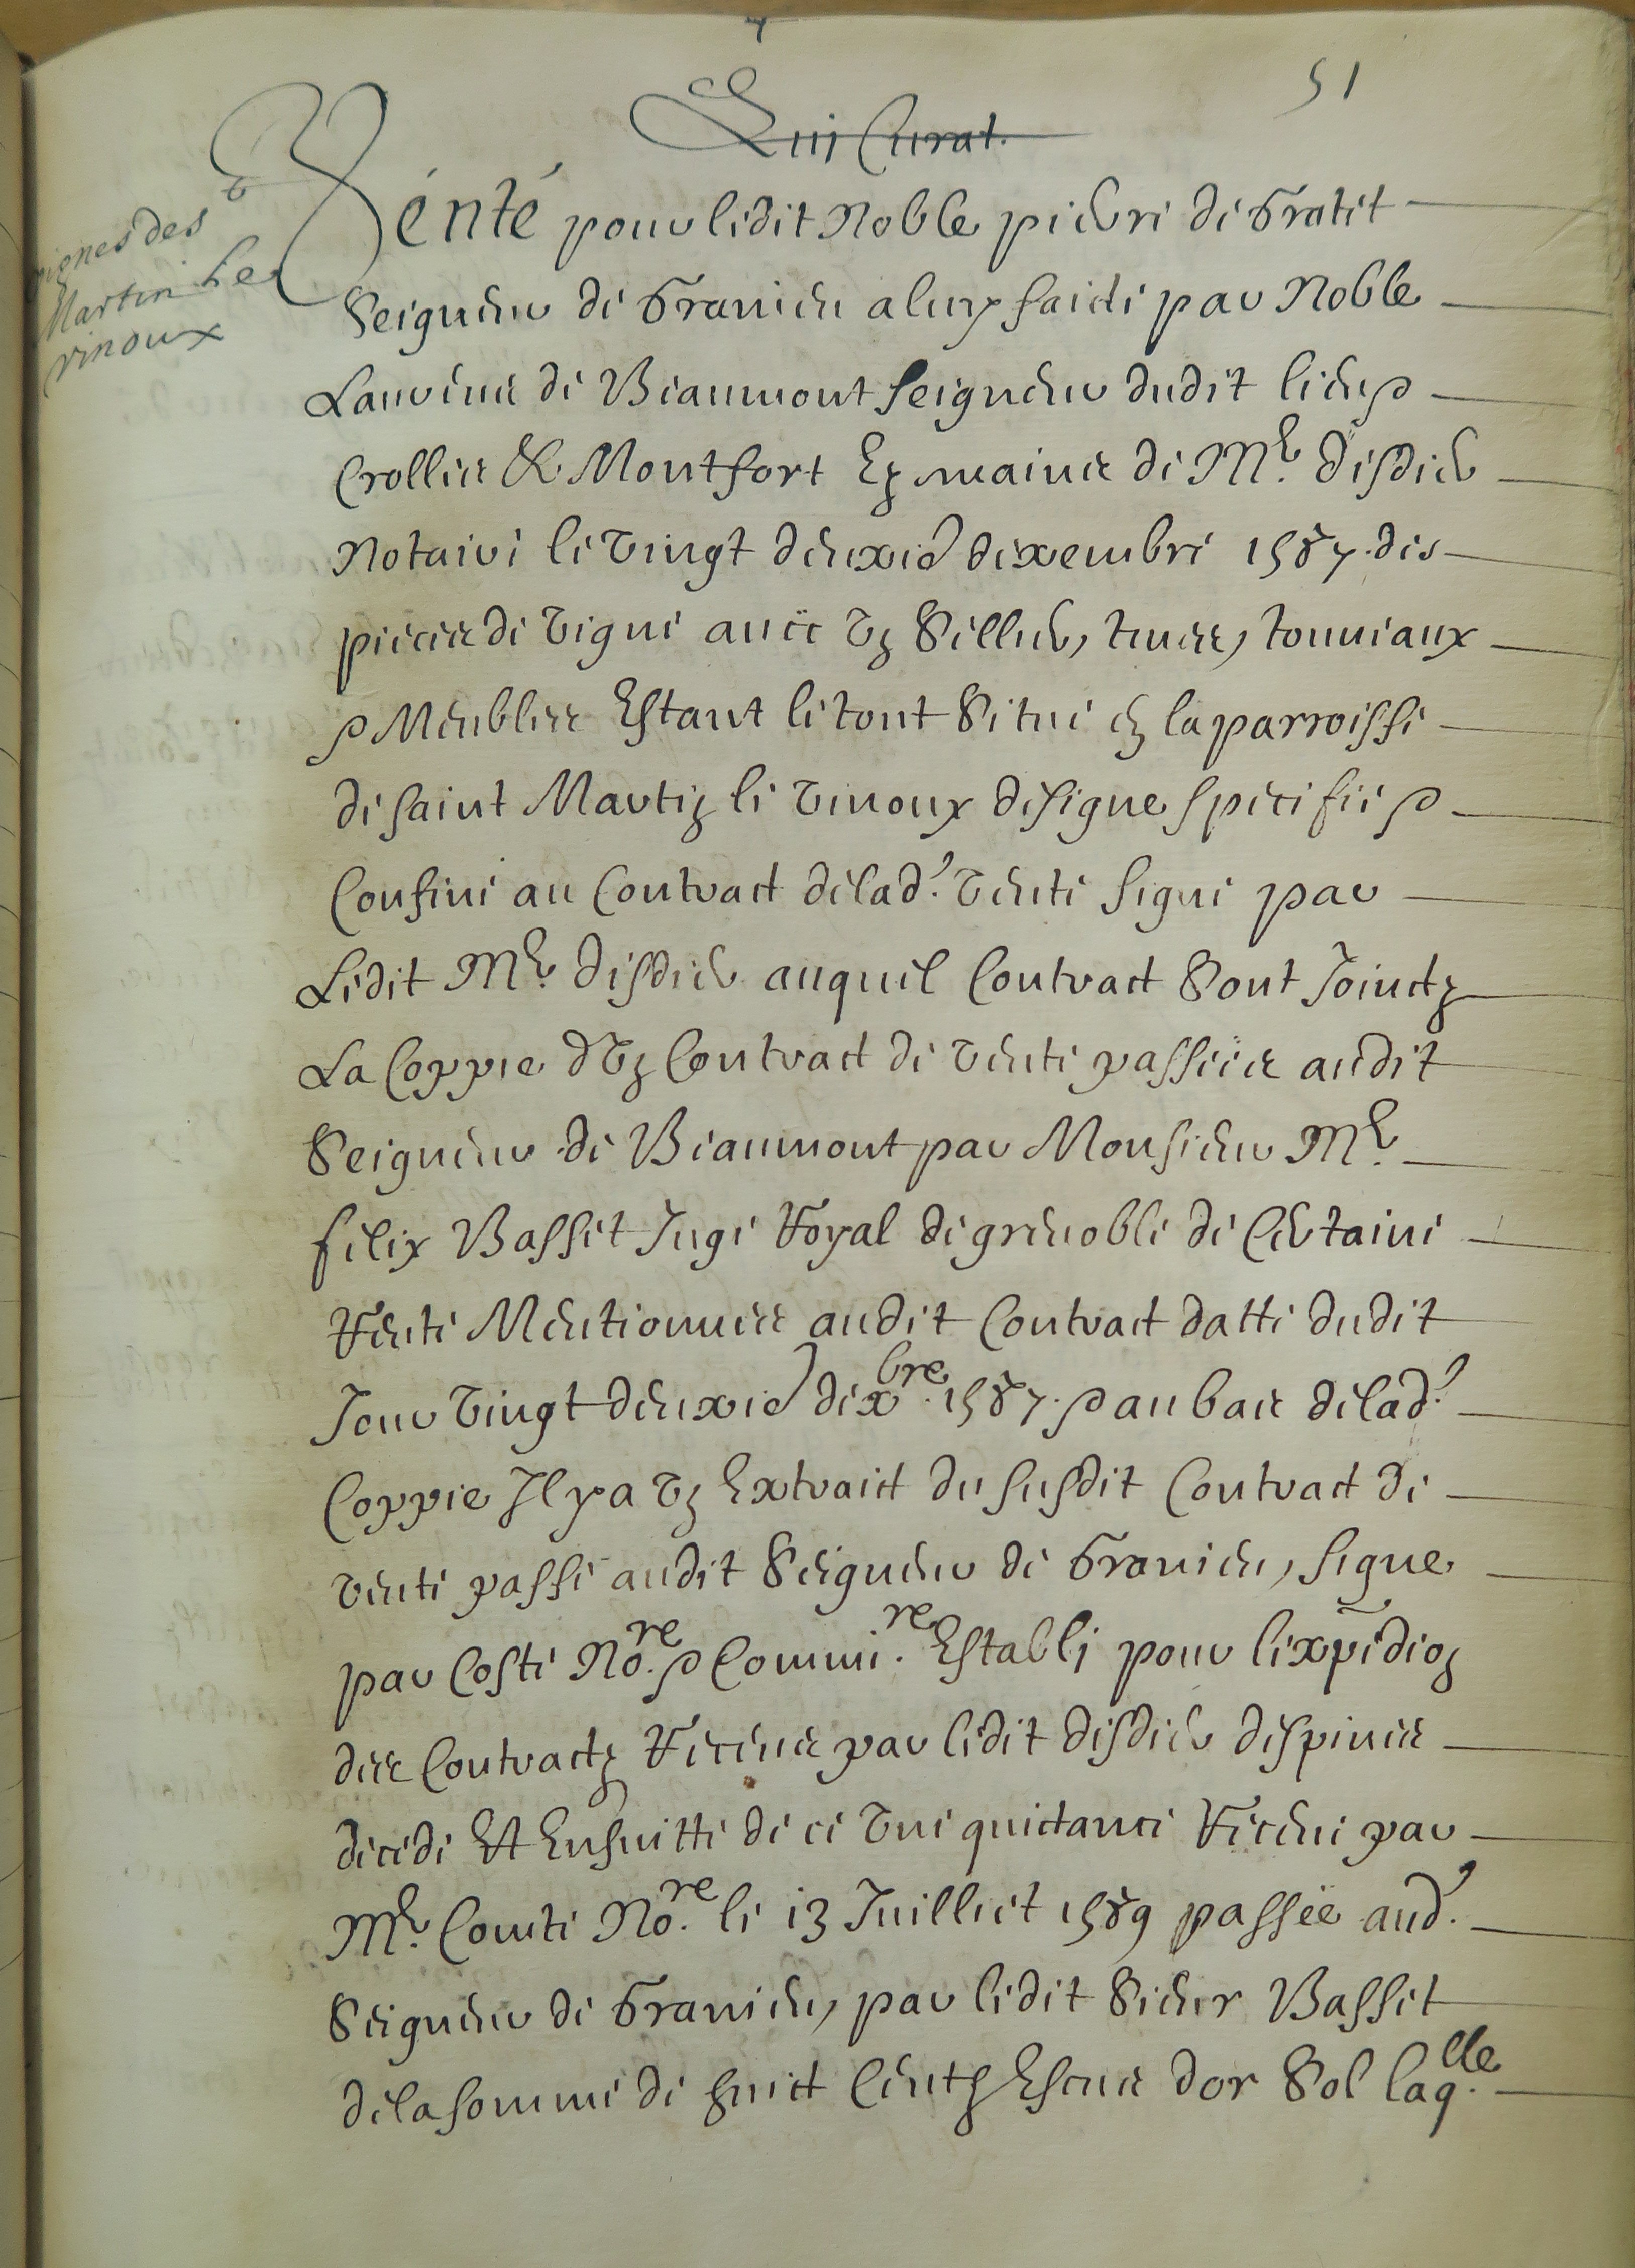 51
Liij Curat.
vignes des
Martin le
vinoux
Vente pour ledit Noble pierre de Fratet
Seigneur de Franieu a luy faicte par Noble
Laurens de Beaumont Seigneur dudit lieu et
Crolles & Montfort Ez mains de Mr. disdier
Notaire le vingt deuxie dexembre 1587. des
pieces de vigne avec un Sellier, tines, tonneaux
et Meubles Estant le tout Situe en la parroisse
de saint Martin le vinoux designe specifie et
Confine au Contract de lad. vente signe par
Ledit Mr. disdier auquel Contract Sont Joinctz
La Coppie d'un Contract de vente passees audit
Seigneur de Beaumont par Monsieur Mr.
felix Basset Juge Royal de grenoble de Certaine
Rente Mentionnees audit Contract datte dudit
Jour vingt deuxie dexbre. 1587. et au bas de lad.
Coppie Il y a un Extraict du susdit Contract de
vente passe audit Seigneur de Franieu, signe
par Coste Nore. et Commire. Establi pour lexpedion
des Contractz Receus par ledit disdier despines
decede Et Ensuitte de ce une quictance Receue par
Mr. Comte Nore. le 13 Juilliet 1589 passée aud.
Seigneur de Franieu, par ledit Sieur Basset
de la somme de huict Centz Escus dor Sol laqlle.